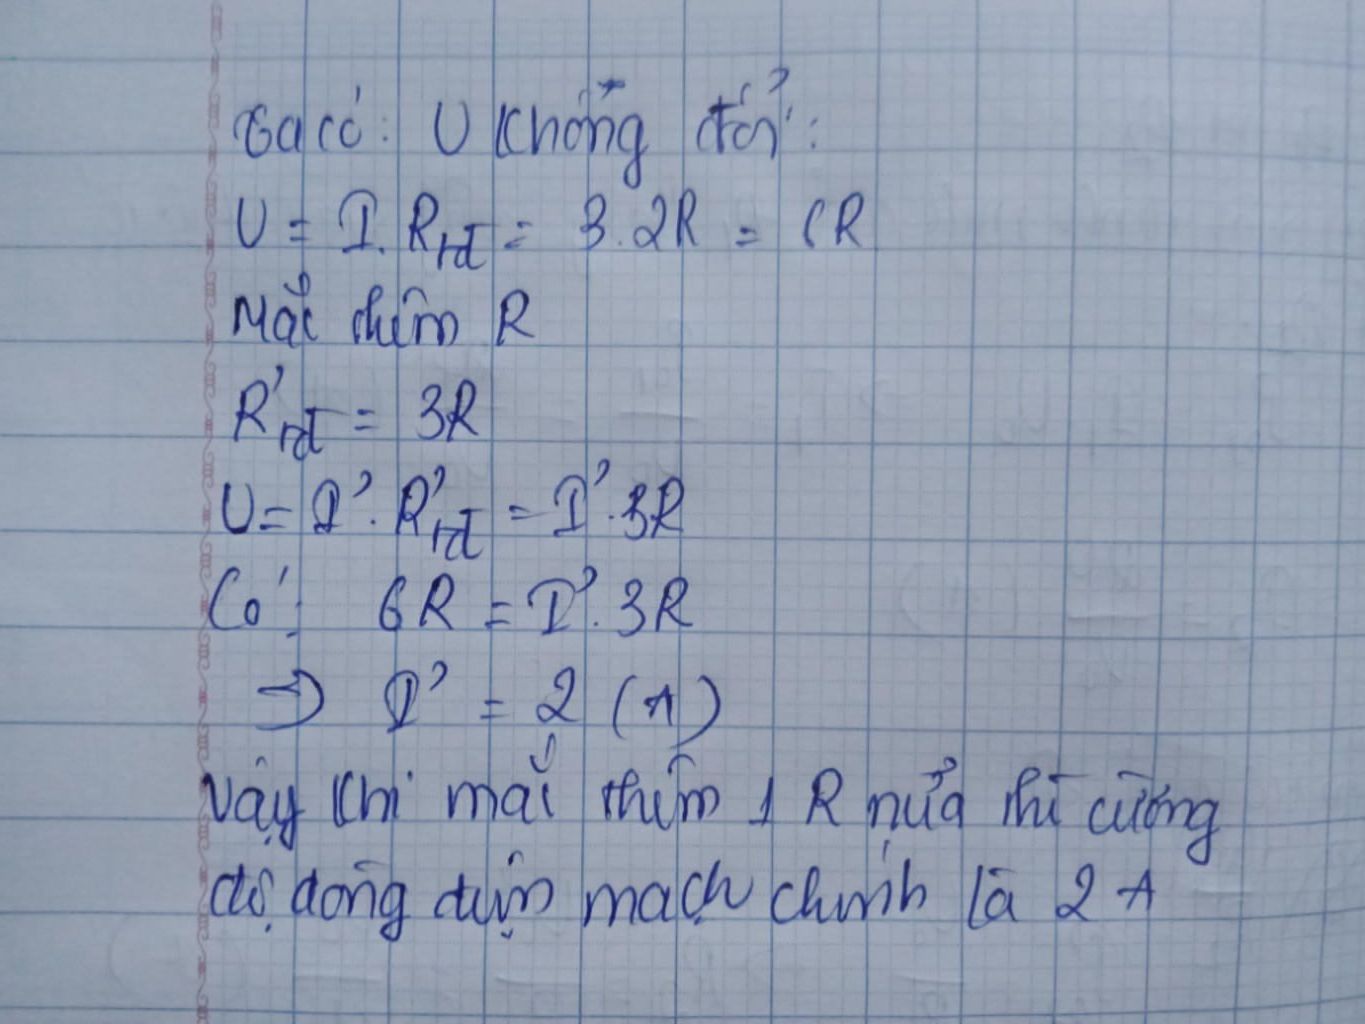 Ta có: U không đổi:
U = I. Rtđ = 3.2R = 6R
Mắc thêm R
R'tđ = 3R
U = I'. R'tđ = I'.3R
Có: 6R = I'. 3R
⇒ I' = 2 (A)
Vậy khi mắc thêm 1 R nửa thì cường
độ dòng điện mạch chính là 2 A